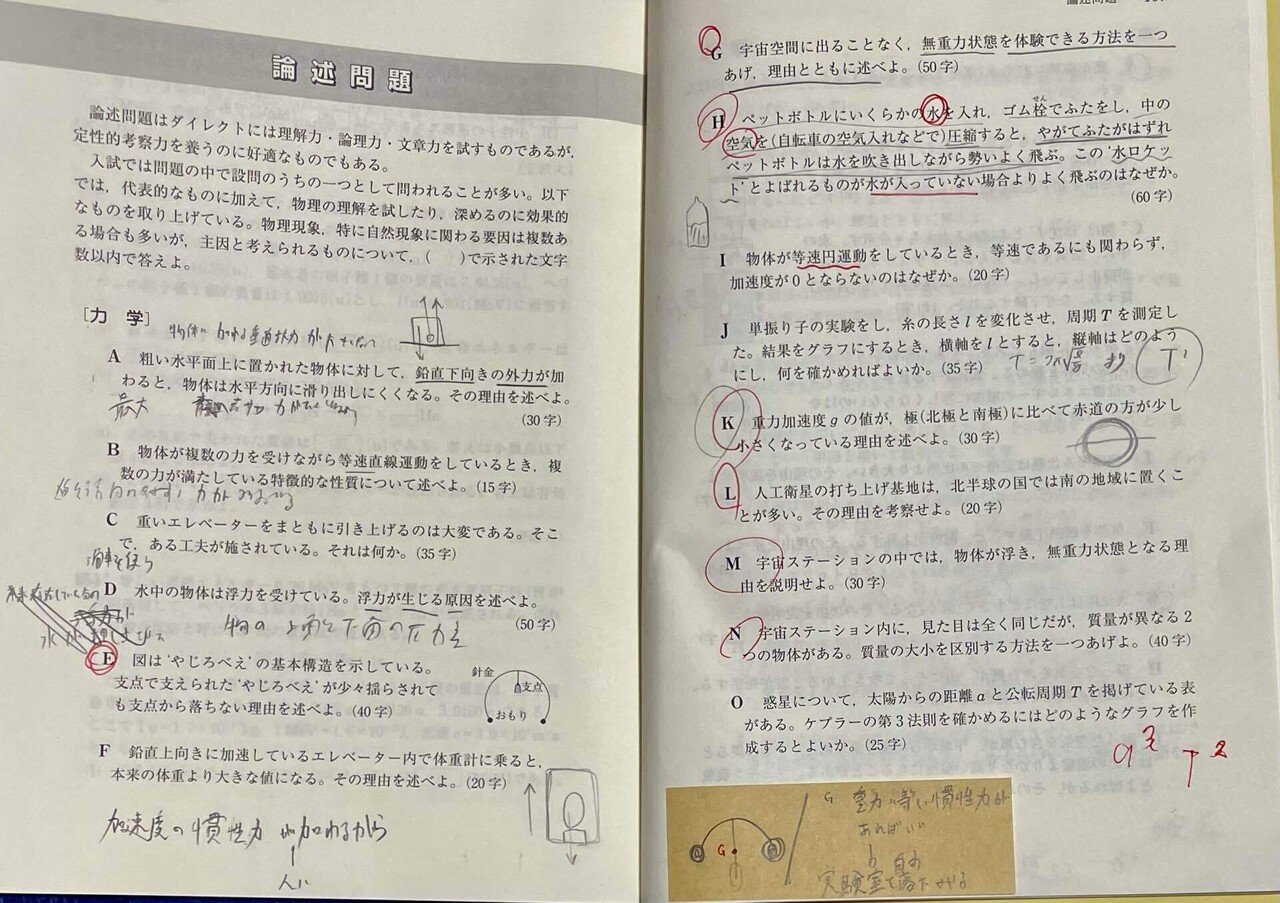 論述問題
論述問題はダイレクトには理解力・論理力・文章力を試すものであるが，
定性的考察力を養うのに好適なものでもある。
入試では問題の中で設問のうちの一つとして問われることが多い。以下
では，代表的なものに加えて，物理の理解を試したり，深めるのに効果的
なものを取り上げている。物理現象，特に自然現象に関わる要因は複数あ
る場合も多いが，主因と考えられるものについて，(　)で示された文字
数以内で答えよ。
[力　学]
物体に加わる垂直抗力が大きくなって
A　粗い水平面上に置かれた物体に対して，鉛直下向きの外力が加
わると，物体は水平方向に滑り出しにくくなる。その理由を述べよ。
(30字)
最大
B　物体が複数の力を受けながら等速直線運動をしているとき，複
数の力が満たしている特徴的な性質について述べよ。(15字)
C　重いエレベーターをまともに引き上げるのは大変である。そこ
で，ある工夫が施されている。それは何か。(35字)
滑車を使う
D　水中の物体は浮力を受けている。浮力が生じる原因を述べよ。
(50字)
物の 上面と下面の圧力差
E　図は‘やじろべえ’の基本構造を示している。
支点で支えられた‘やじろべえ’が少々揺らされて
も支点から落ちない理由を述べよ。(40字)
針金
支点
おもり
F　鉛直上向きに加速しているエレベーター内で体重計に乗ると，
本来の体重より大きな値になる。その理由を述べよ。(20字)
加速度の慣性力が加わるから
人に
論述問題
G　宇宙空間に出ることなく，無重力状態を体験できる方法を一つ
あげ，理由とともに述べよ。(50字)
H　ペットボトルにいくらかの水を入れ，ゴム栓でふたをし，中の
せん
空気を(自転車の空気入れなどで)圧縮すると，やがてふたがはずれ
ペットボトルは水を吹き出しながら勢いよく飛ぶ。この‘水ロケッ
ト’とよばれるものが水が入っていない場合よりよく飛ぶのはなぜか。
(60字)
I　物体が等速円運動をしているとき，等速であるにも関わらず，
加速度が0とならないのはなぜか。(20字)
J　単振り子の実験をし，糸の長さlを変化させ，周期Tを測定し
た。結果をグラフにするとき，横軸をlとすると，縦軸はどのよう
にし，何を確かめればよいか。(35字)
K　重力加速度gの値が，極(北極と南極)に比べて赤道の方が少し
小さくなっている理由を述べよ。(30字)
L　人工衛星の打ち上げ基地は，北半球の国では南の地域に置くこ
とが多い。その理由を考察せよ。(20字)
M　宇宙ステーションの中では，物体が浮き，無重力状態となる理
由を説明せよ。(30字)
N　宇宙ステーション内に，見た目は全く同じだが，質量が異なる2
つの物体がある。質量の大小を区別する方法を一つあげよ。(40字)
O　惑星について，太陽からの距離aと公転周期Tを掲げている表
がある。ケプラーの第3法則を確かめるにはどのようなグラフを作
成するとよいか。(25字)
a³ T²
G 重力に等しい慣性力が
あればいい
G
自由
実験室を落下させる